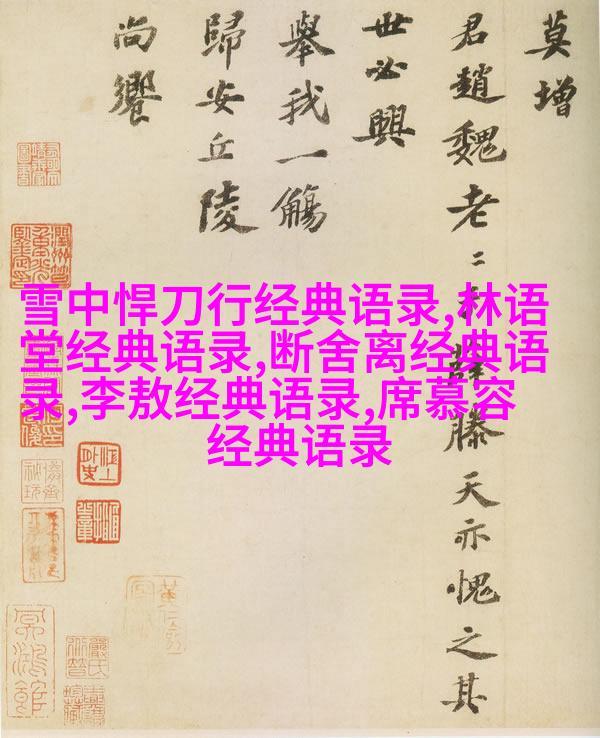 莫增
君趙魏老〻薛滕天亦愧之其
世必興
舉我一觴
歸安丘陵
尚饗
雪中悍刀行经典语录,林语
堂经典语录,断舍离经典语
录,李敖经典语录,席慕容
经典语录